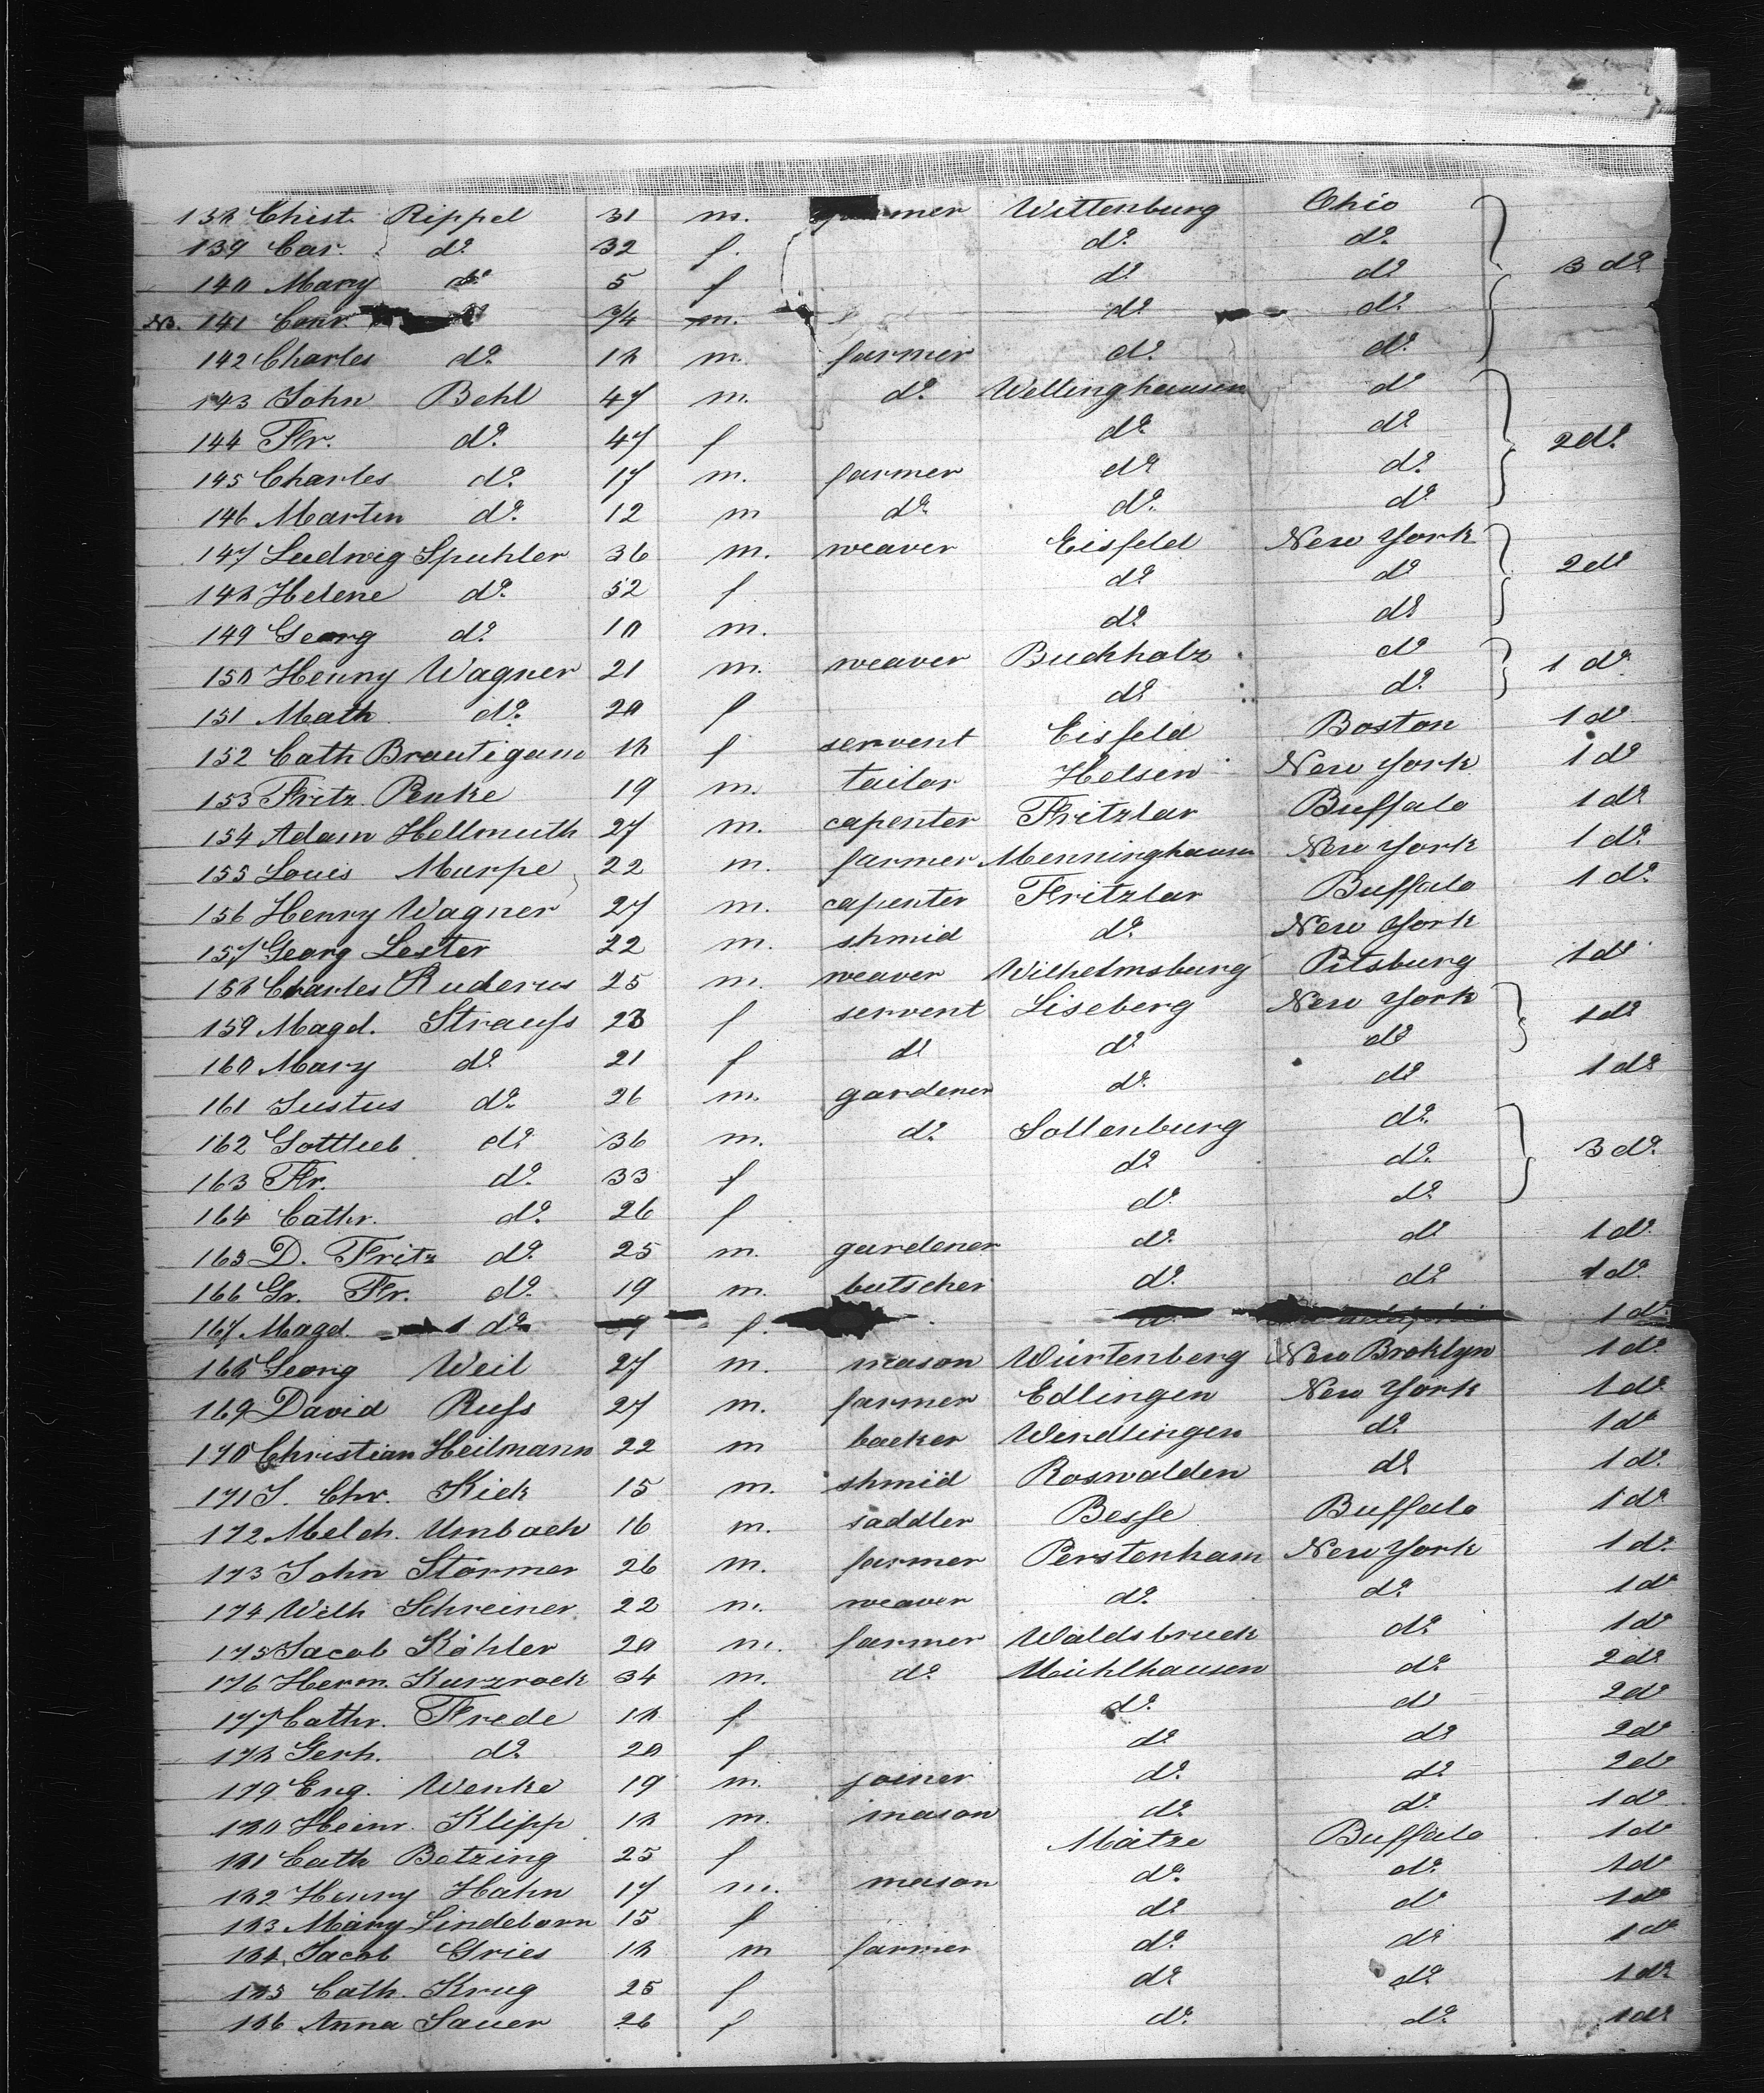 138 Christ. Rippel 31 m. farmer Wittenburg Ohio
139 Car. do. 32 f. do. do.
140 Mary do. 5 f do. do. 3 do.
No. 141 Conr. 3/4 m. do. do.
142 Charles do. 18 m. farmer do. do.
143 John Behl 47 m. do. Wellinghausen do
144 Fr. do. 47 f do. do. 2 do.
145 Charles do. 17 m. farmer do. do.
146 Martin do. 12 m do. do. do.
147 Ludwig Spuhler 36 m. weaver Eisfeld New York
148 Helene do. 52 f do. do 2 do
149 Georg do. 10 m. do. do.
150 Henry Wagner 21 m. weaver Buchholz do 1 do.
151 Math. do. 20 f do. do.
152 Cath Brautigam 18 f servent Eisfeld Boston 1 do
153 Fritz Penke 19 m. tailor Helsen New York 1 do
154 Adam Hellmuth 27 m. capenter Fritzlar Buffalo 1 do.
155 Louis Murpe 22 m. farmer Menninghausen New York 1 do.
156 Henry Wagner 27 m. capenter Fritzlar Buffalo 1 do.
157 Georg Lester 22 m. shmid do. New York
158 Charles Ruderus 25 m. weaver Wilhelmsburg Pitsburg 1 do
159 Magd. Strauss 23 f servent Liseberg New York 1 do
160 Mary do. 21 f do do. do
161 Justus do. 26 m. gardener do. do 1 do
162 Gottlieb do. 36 m. do. Sollenburg do.
163 Fr. do. 33 f do. do. 3 do.
164 Cathr. do. 26 f do. do.
165 D. Fritz do. 25 m. gardener do. do 1 do.
166 Gr. Fr. do. 19 m. butscher do. do. 1 do.
167 Magd. do. f. do. 1 do.
168 Georg Weil 27 m. mason Würtenberg New Broklyn 1 do.
169 David Russ 27 m. farmer Edlingen New York 1 do.
170 Christian Heilmann 22 m backer Wendlingen do. 1 do
171 J. Chr. Kick 15 m. shmid Roswalden do 1 do.
172 Melch. Umbach 16 m. saddler Besse Buffalo 1 do.
173 John Störmer 26 m. farmer Perstenham New York 1 do.
174 Wilh Schreiner 22 m. weaver do. do. 1 do
175 Jacob Köhler 20 m. farmer Waldsbruck do. 1 do
176 Herm. Kurzrock 34 m. do. Mühlhausen do. 2 do
177 Cathr. Frede 18 f do. do 2 do
178 Gerh. do. 20 f do do 2 do
179 Eng. Wenke 19 m. joiner do. do. 2 do
180 Heinr. Klipp 18 m. mason do. do. 1 do
181 Cath Botzing 25 f Mätze Buffalo 1 do
182 Henry Hahn 17 m. mason do. do. 1 do
183 Mary Lindeborn 15 f do do 1 do
184 Jacob Gries 18 m farmer do. do 1 do
185 Cath. Krug 25 f do. do. 1 do
186 Anna Sauer 26 f do. do. 1 do